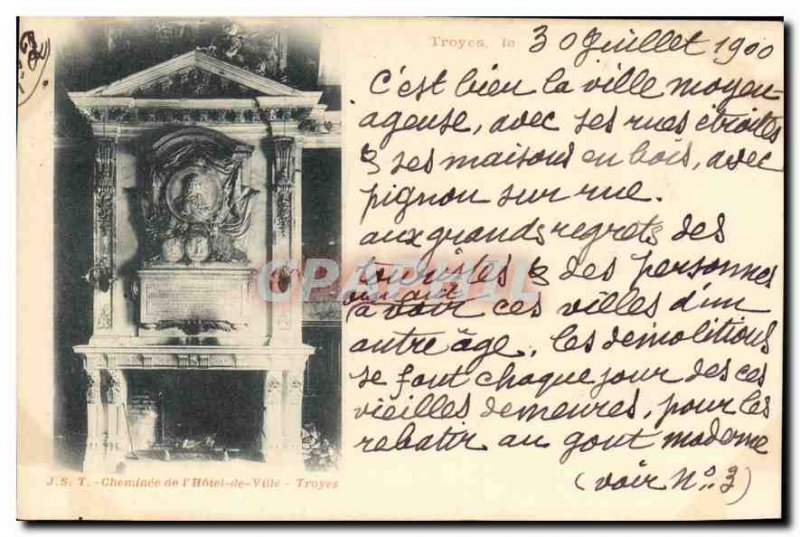 Troyes, le 30 Juillet 1900
C'est bien la ville moyen-
ageuse, avec ses rues étroites
& ses maisons en bois, avec
pignon sur rue.
aux grands regrets des
touristes & des personnes
aimant
à voir ces villes d'un
autre âge, les démolitions
se font chaque jour des ces
vieilles demeures, pour les
rebatir au gout moderne
(voir N° 3)
J.S.T. - Cheminée de l'Hôtel-de-Ville - Troyes
CPARAMA.COM